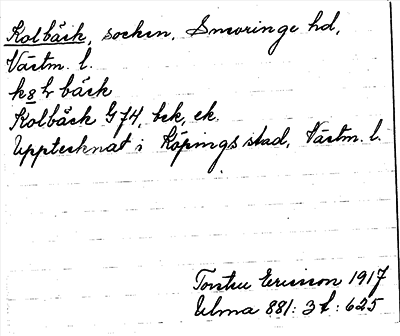 Kolbäck, socken, Snevringe hd,
Västm. l.
Kolbäck G 74, bek, ek.
Upptecknat i Köpings stad, Västm. l.
Torsten Ericsson 1917
Ulma 881: 3 f: 625